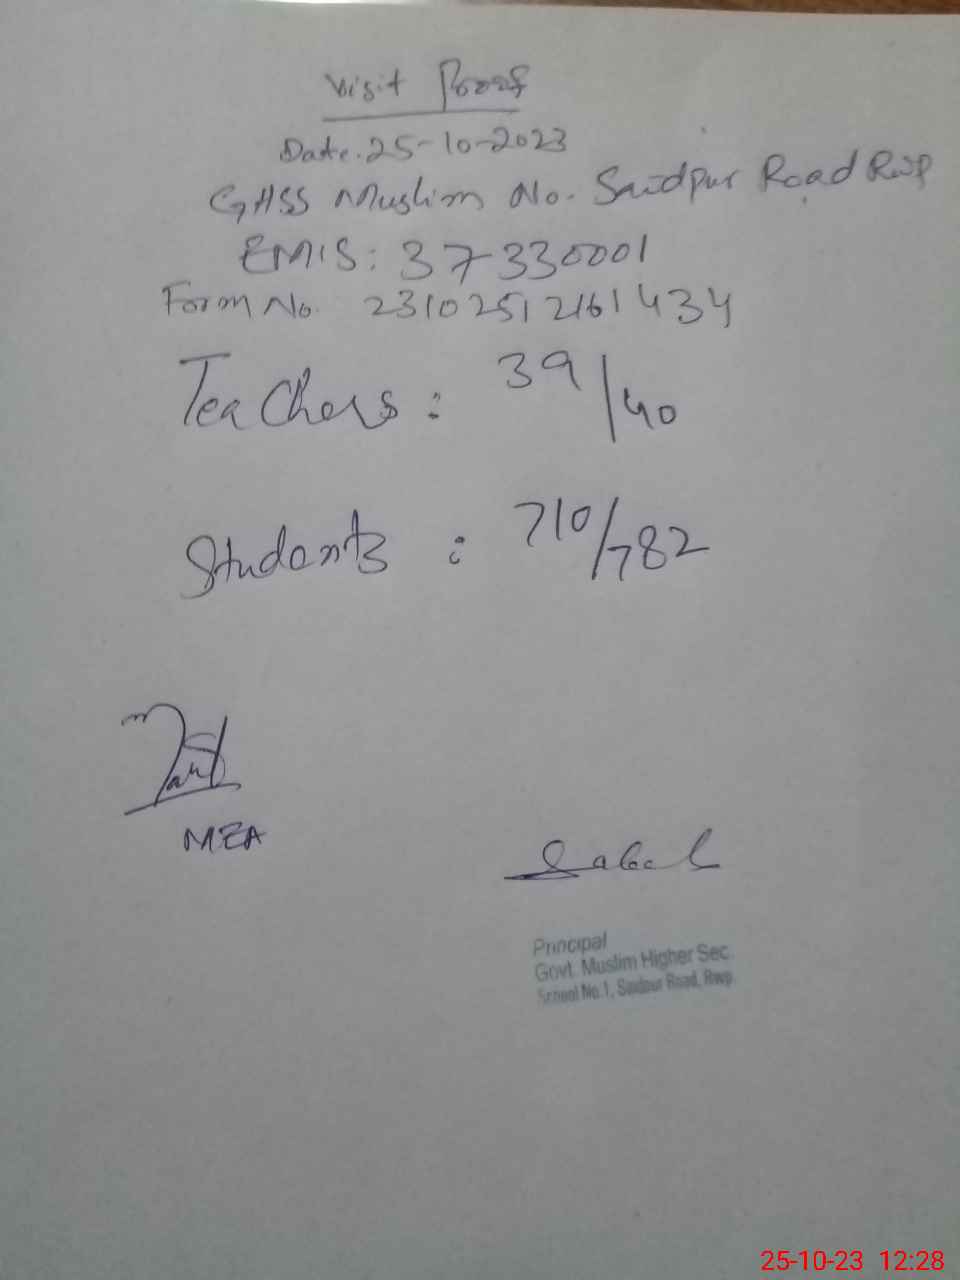 Visit Proof
Date. 25-10-2023
GHSS Muslim No. Saidpur Road Rwp
EMIS: 37330001
Form No. 23102512161434
Teachers: 39/40
Students: 710/782
MEA
Principal
Govt. Muslim Higher Sec.
School No.1, Saidpur Road, Rwp.
25-10-23 12:28